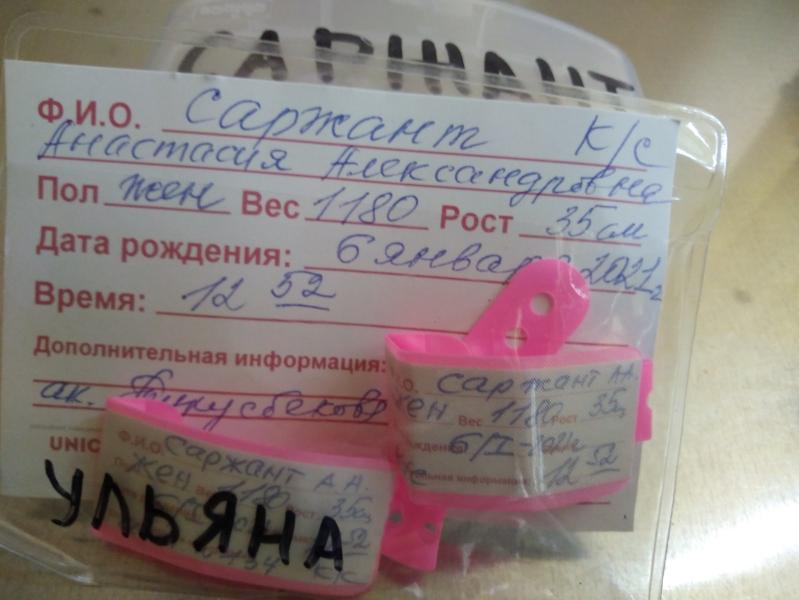 САРЖАНТ
Ф.И.О. Саржант К/с
Анастасия Александровна
Пол жен Вес 1180 Рост 35 см
Дата рождения: 6 января 2021г
Время: 12 52
Дополнительная информация:
ак.
UNIC
.О. Саржант А.А.
жен Вес 1180 Рост 35
6/I-2021г
информация: 12 52
Ф.И.О. Саржант А.А.
жен 1180 35см
52
К/с
УЛЬЯНА